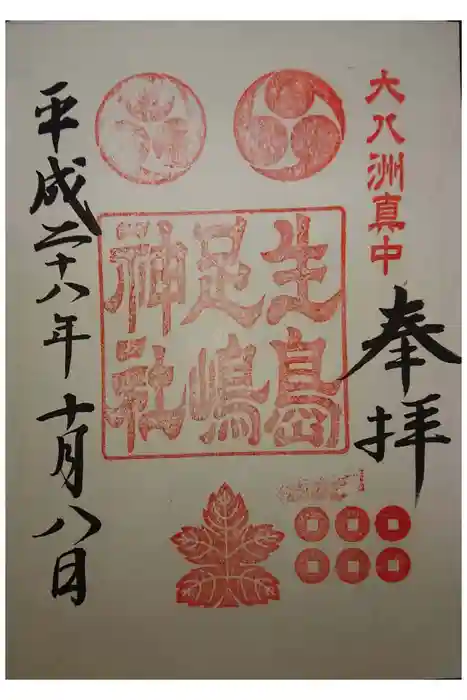 大八洲真中
奉拝
生島
足嶋
神社
平成二十八年十月八日